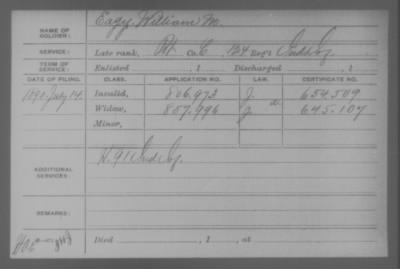 NAME OF SOLDIER: Eagy, William M.
SERVICE: Late rank, Pvt Co. C, 124 Reg't Ind Inf
TERM OF SERVICE: Enlisted , 1 Discharged , 1
DATE OF FILING. CLASS. APPLICATION NO. LAW. CERTIFICATE NO.
1890 July 14. Invalid, 806,973 J. 654,509
Widow, 857,996 J. 645,107
Minor,
ADDITIONAL SERVICES: K. 91 Ind Inf
REMARKS:
Died , 1 , at